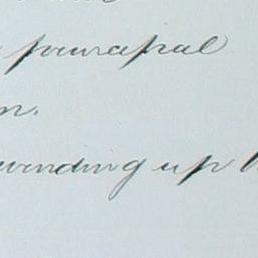 principal
n.
winding up